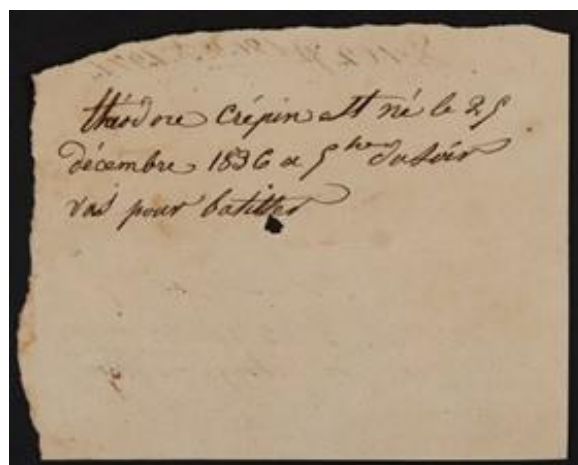 théodore Crépin est né le 25
décembre 1836 a 5 hre du soir
pour